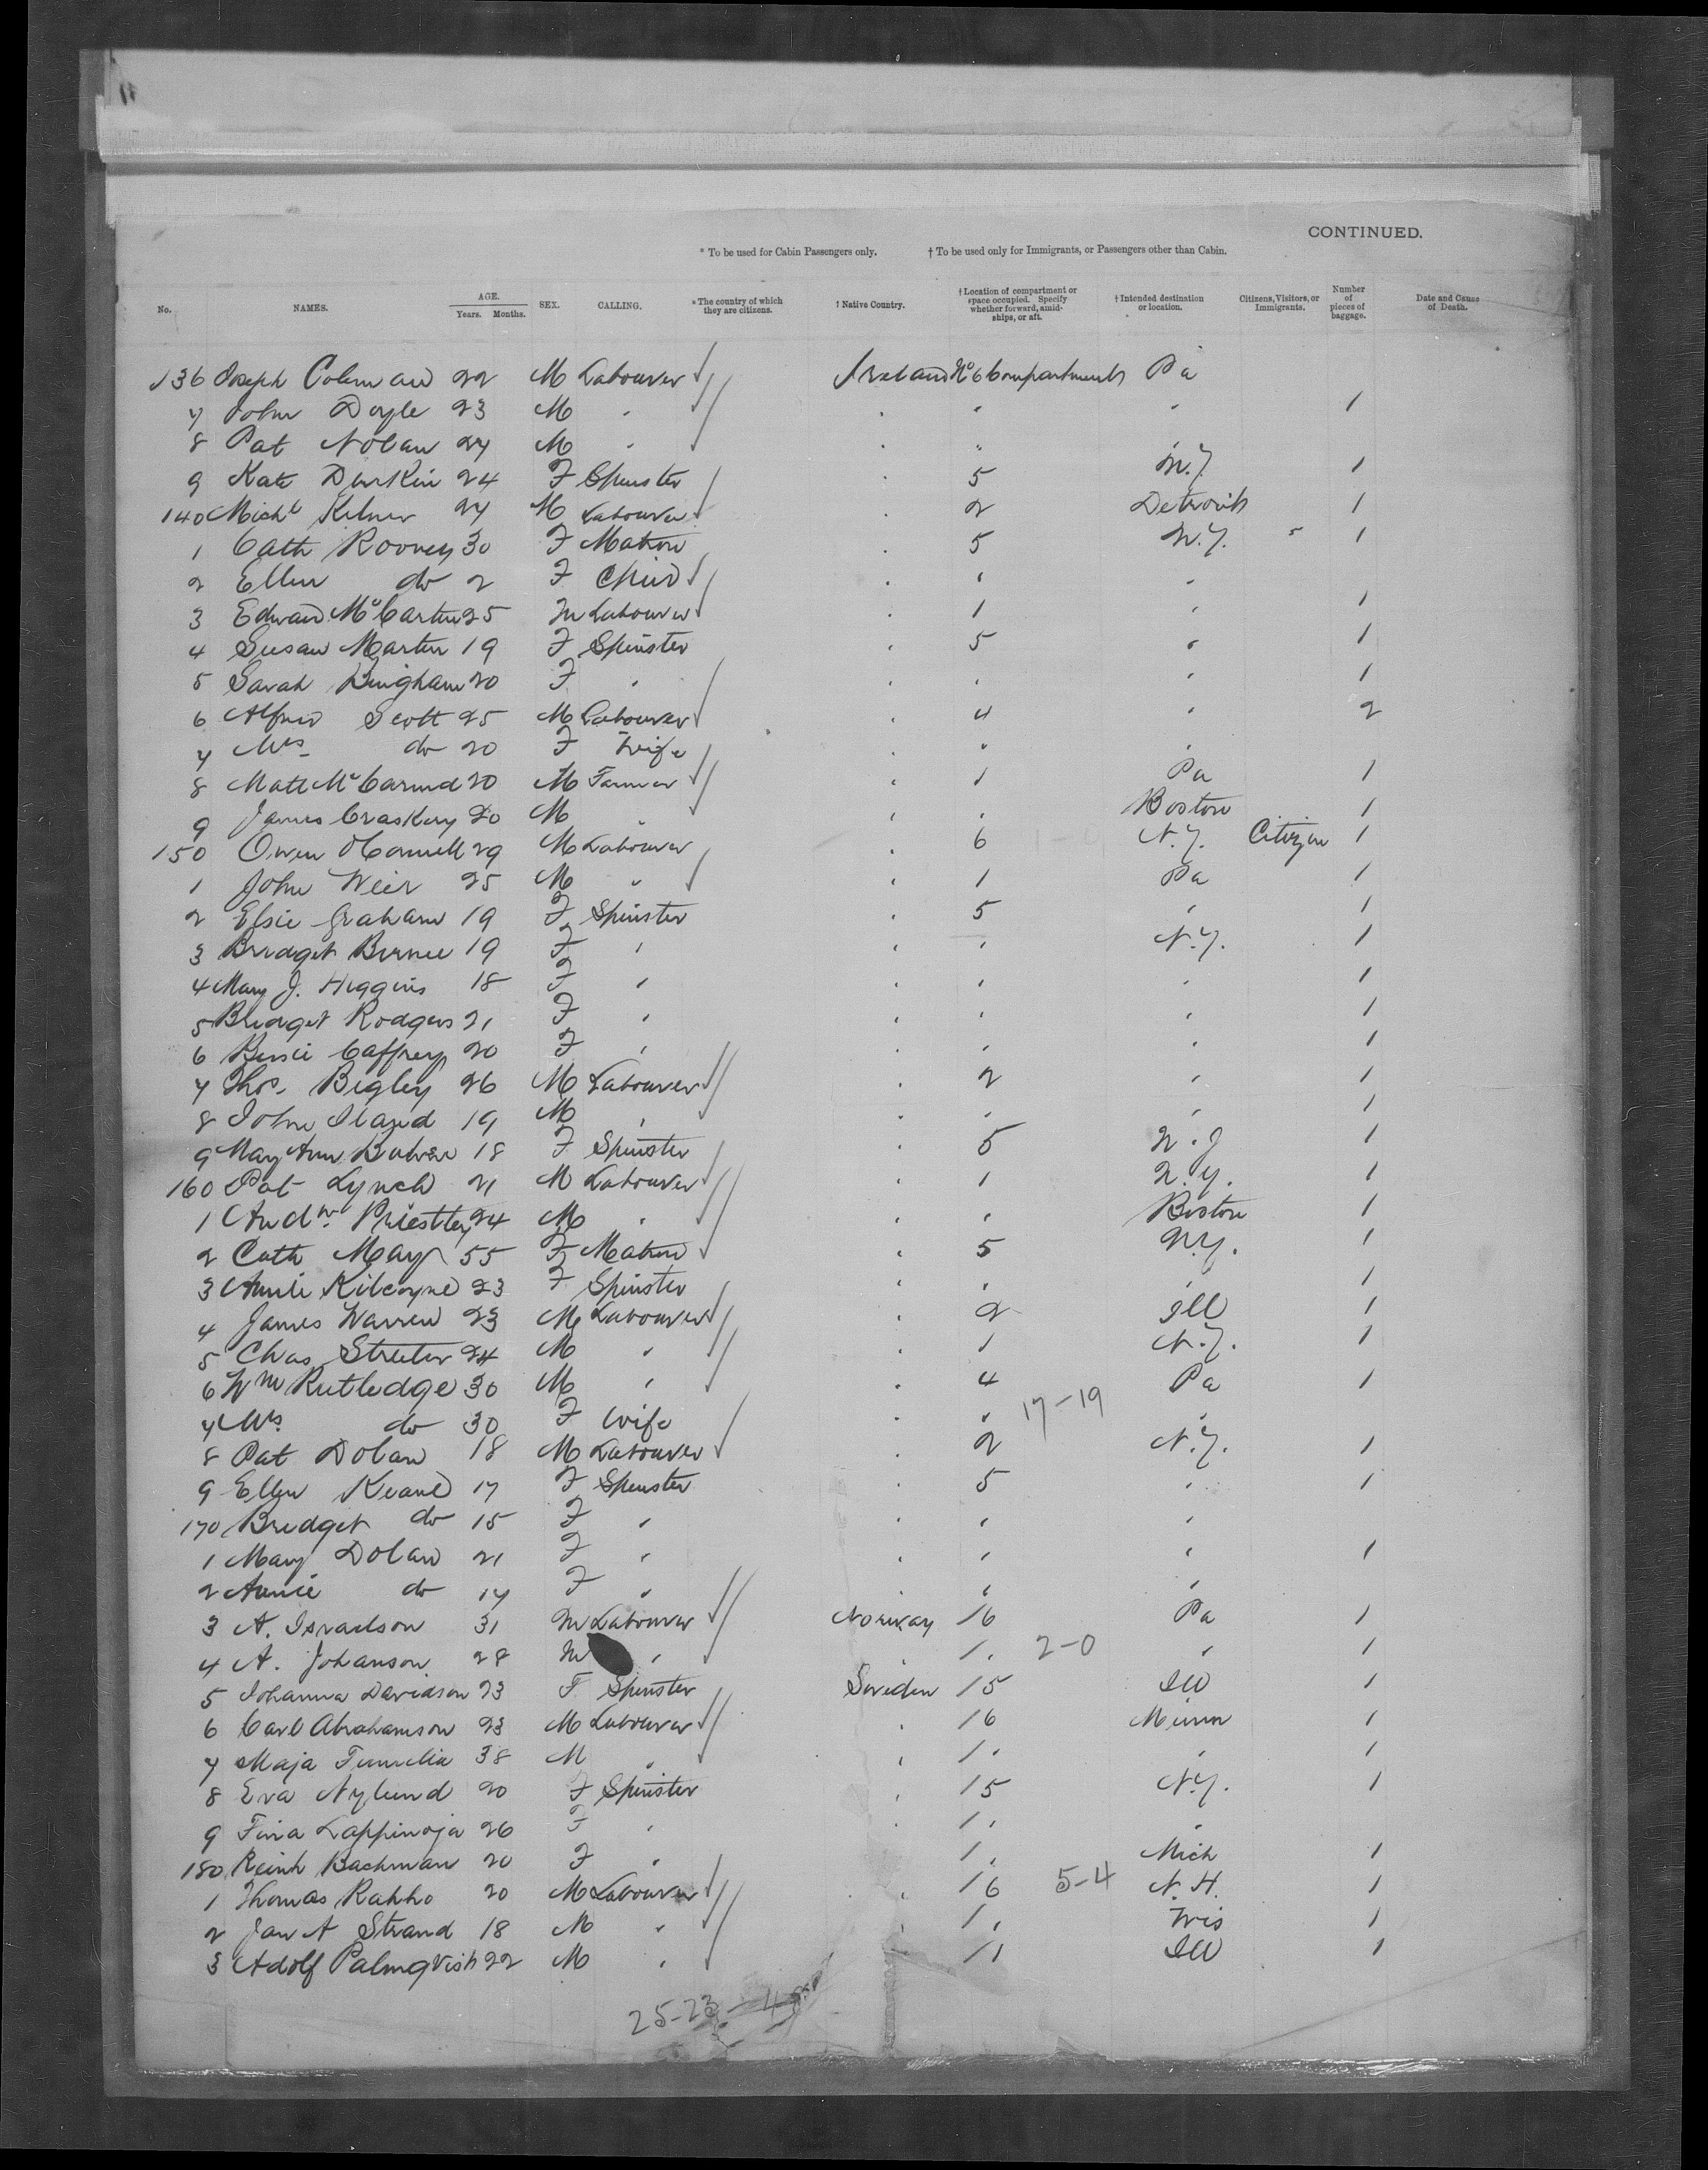 CONTINUED.
* To be used for Cabin Passengers only. † To be used only for Immigrants, or Passengers other than Cabin.
No. NAMES. AGE. Years. Months. SEX. CALLING. * The country of which they are citizens. † Native Country. † Location of compartment or space occupied. Specify whether forward, amidships, or aft. † Intended destination or location. Citizens, Visitors, or Immigrants. Number of pieces of baggage. Date and Cause of Death.
136 Joseph Coleman 22 M Labourer Ireland No 6 Compartment Pa
7 John Doyle 23 M " " " " 1
8 Pat Nolan 27 M " " "
9 Kate Durkin 24 F Spinster " 5 N.Y. 1
140 Michl 27 M Labourer " 2 Detroit 1
1 Cath Rooney 30 F Matron " 5 N.Y. " 1
2 Ellen do 2 F Child " " "
3 Edward 25 M Labourer " 1 " 1
4 Susan Martin 19 F Spinster " 5 " 1
5 Sarah Bingham 20 F " " " " 1
6 Alfred Scott 25 M Labourer " 4 " 2
7 Mrs do 20 F Wife " " "
8 Matt 20 M Farmer " 1 Pa 1
9 James 20 M " " " Boston 1
150 Owen 29 M Labourer " 6 N.Y. Citizen 1
1 John Weir 25 M " " 1 Pa 1
2 Elsie Graham 19 F Spinster " 5 " 1
3 Bridget 19 F " " " N.Y. 1
4 Mary J. Higgins 18 F " " " " 1
5 Bridget Rodgers 21 F " " " " 1
6 Caffrey 20 F " " " " 1
7 Thos. Begley 26 M Labourer " 2 " 1
8 John 19 M " " " " 1
9 Mary Ann 18 F Spinster " 5 N.J 1
160 Pat Lynch 21 M Labourer " 1 N.Y. 1
1 Andw. Priestley 24 M " " " Boston 1
2 Cath May 55 F Matron " 5 N.Y. 1
3 Annie Kilcoyne 23 F Spinster " " " 1
4 James Warren 23 M Labourer " 2 Ill 1
5 Chas Streeter 24 M " " 1 N.Y. 1
6 Wm Rutledge 30 M " " 4 Pa 1
7 Mrs do 30 F Wife " " 17-19 "
8 Pat Dolan 18 M Labourer " 2 N.Y. 1
9 Ellen Keane 17 F Spinster " 5 " 1
170 Bridget do 15 F " " " "
1 Mary Dolan 21 F " " " " 1
2 Annie do 17 F " " " "
3 A. Israelson 31 M Labourer Norway 16 Pa 1
4 A. Johanson 28 M " 1 " 2-0 " 1
5 Johanna Davidson 23 F Spinster Sweden 15 Ill 1
6 Carl Abrahamson 23 M Labourer " 16 Minn 1
7 Maja 38 M " " 1 " " 1
8 Eva Nylund 20 F Spinster " 15 N.Y. 1
9 Fina Lappinoja 26 F " " 1 " "
180 Bachman 20 F " 1 " Mich 1
1 Thomas Rahko 20 M Labourer " 16 5-4 N.H. 1
2 Jan A Strand 18 M " " 1 " Wis 1
3 Adolf Palmqvist 22 M " 1 " Ill 1
25-23